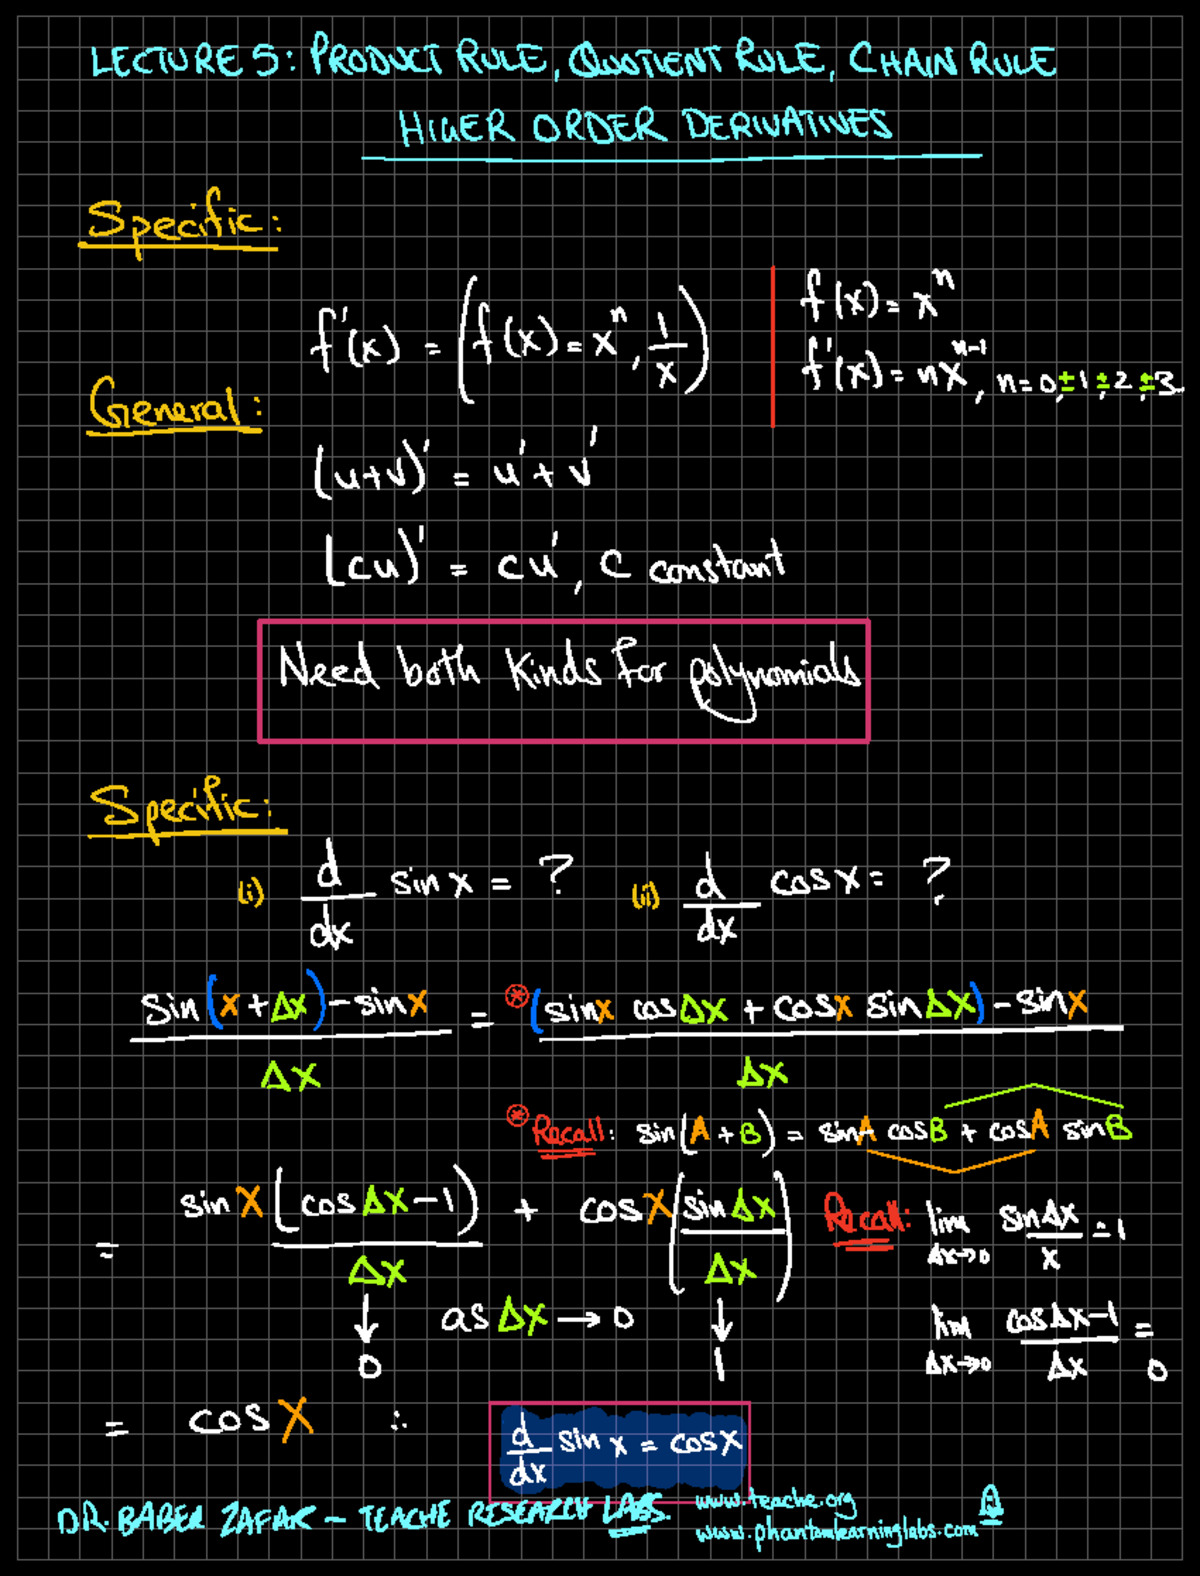 LECTURE 5: PRODUCT RULE, QUOTIENT RULE, CHAIN RULE
HIGER ORDER DERIVATIVES
Specific:
f'(x) = (f(x) = x^n, 1/x)
f(x) = x^n
f'(x) = nx^{n-1}, n = 0, ±1, ±2, ±3
General:
(u+v)' = u' + v'
(cu)' = cu', c constant
Need both kinds for polynomials
Specific:
(i) d/dx sin x = ? (ii) d/dx cos x = ?
(sin(x + Δx) - sin x)/Δx = ⊛ ((sin x cos Δx + cos x sin Δx) - sin x)/Δx
⊛ Recall: sin(A + B) = sin A cos B + cos A sin B
= sin x (cos Δx - 1)/Δx + cos x (sin Δx/Δx)
Recall: lim Δx→0 sin Δx/x = 1
↓ as Δx → 0 ↓
0 1
lim Δx→0 (cos Δx - 1)/Δx = 0
= cos x ∴ d/dx sin x = cos x
DR. BABER ZAFAR – TEACHE RESEARCH LABS.
www.teache.org
www.phantomlearninglabs.com